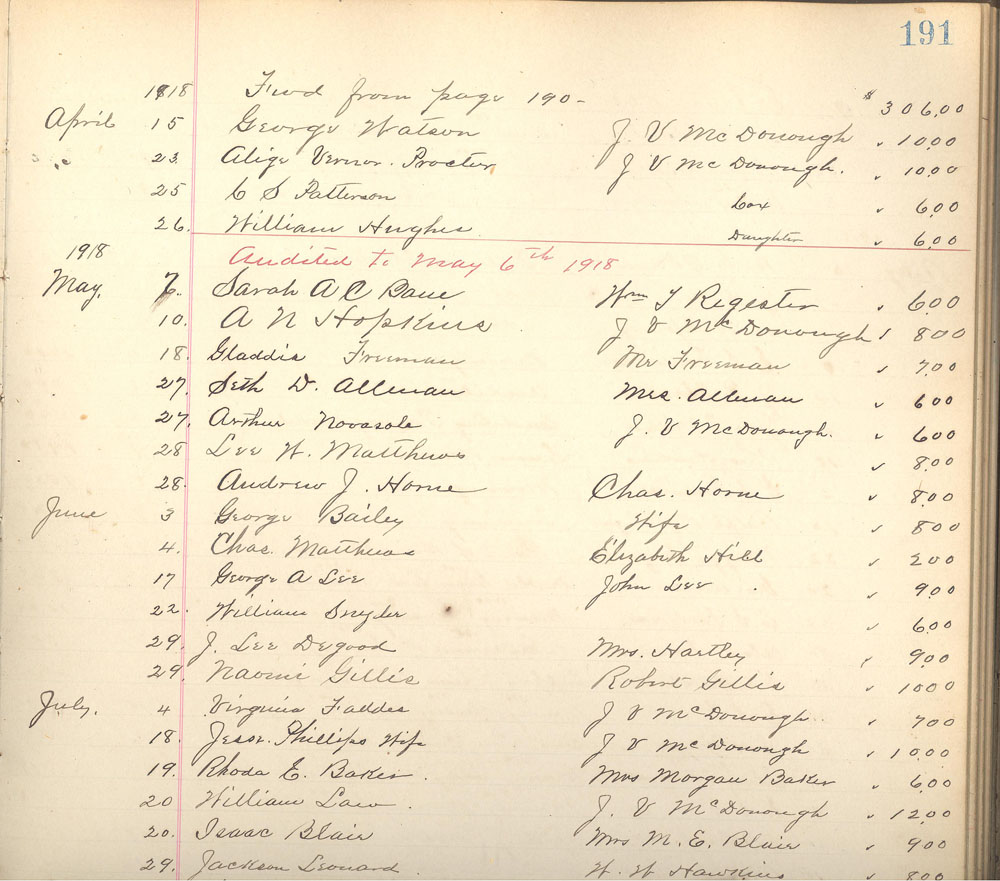 191
1918 Fwd from page 190- $306.00
April 15 George Watson J. V McDonough " 10.00
" " 23 Alige Vernor Procter J V McDonough. " 10.00
25 C S Patterson Cox " 6.00
26. William Hughes Daughter " 6.00
1918 Audited to May 6th 1918
May. 7. Sarah A C Wm T Regester " 6.00
10. A N Hopkins J V McDonough " 8.00
18. Gladdis Freeman Mr Freeman " 7.00
27. Seth D. Allman Mrs. Allman " 6.00
27. Arthur Novasole J. V McDonough. " 6.00
28 Lee W. Matthews " 8.00
28. Andrew J. Horne Chas. Horne " 8.00
June 3 George Bailey Wife " 8.00
4. Chas. Matthews Elizabeth Hill " 2.00
17 George A Lee John Lee " 9.00
22. William Snyder " 6.00
29. J. Lee Degood Mrs. Hartley " 9.00
29. Naomi Gillis Robert Gillis " 10.00
July. 4 Virginia Faddes J V McDonough " 7.00
18. Jess. Phillips Wife J V McDonough " 10.00
19. Rhoda E. Baker. Mrs Morgan Baker " 6.00
20 William Law. J. V McDonough " 12.00
20. Isaac Blair Mrs M. E. Blair " 9.00
29. Jackson Leonard W. W Hawkins " 8.00